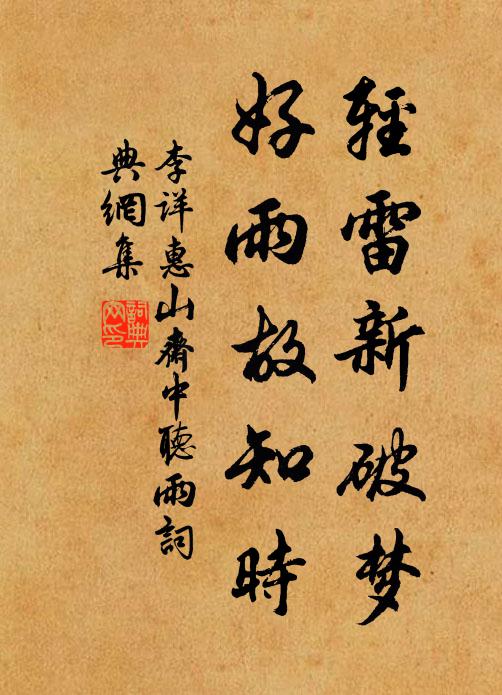 輕雷新破梦
好雨故知時
李詳惠山齋中聽雨詞
典網集
詞典网印